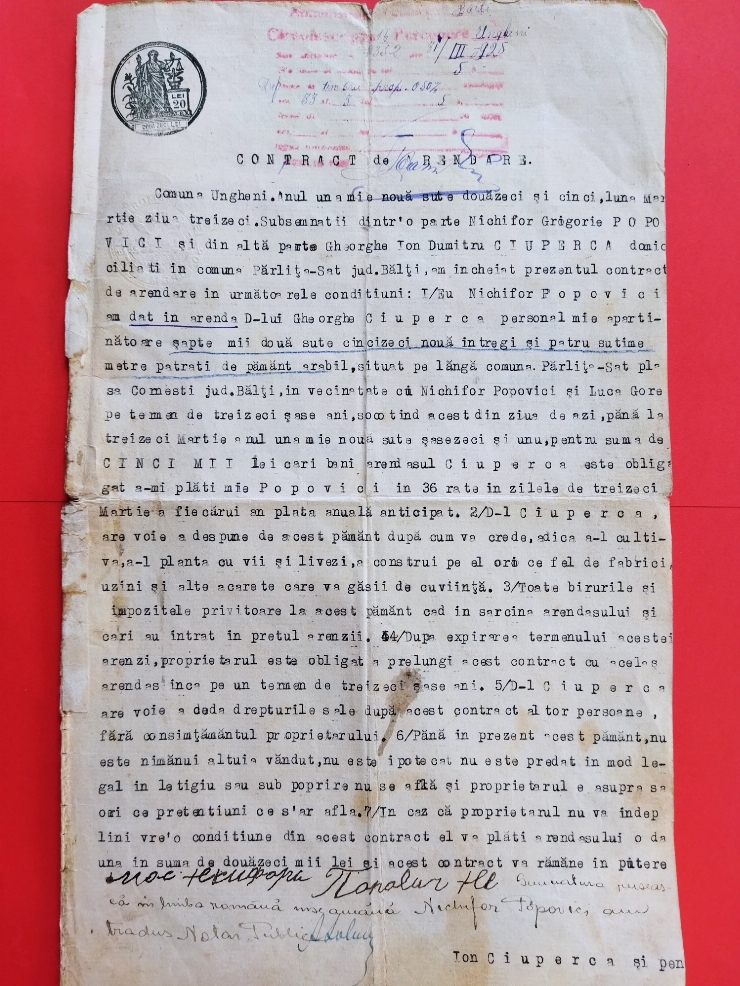 LEI
20
Ungheni
31/III 925
5
CONTRACT de ARENDARE.
Comuna Ungheni.Anul una mie nouă sute douăzeci și cinci,luna Mar
tie ziua treizeci.Subsemnatii dintr'o parte Nichifor Grigorie P O P O
V I C I și din altă parte Gheorghe Ion Dumitru C I U P E R C A domic
ciliati in comuna Părlița-Sat jud.Bălți,am incheiat prezentul contract
de arendare in următoarele conditiuni: I/Eu Nichifor P o p o v i c i
am dat in arenda D-lui Gheorghe C i u p e r c a personal mie aparti-
nătoare șapte mii două sute cincizeci nouă intregi și patru sutime
metre patrati de pământ arabil,situat pe lângă comuna Părlița-Sat pla
sa Cornesti jud.Bălți,in vecinatate cu Nichifor Popovici și Luca Gore
pe termen de treizeci șase ani,socotind acest din ziua de azi,până la
treizeci Martie anul una mie nouă sute șasezeci și unu,pentru suma de
C I N C I M I I lei cari bani arendasul C i u p e r c a este oblig
gat a-mi plăti mie P o p o v i c i in 36 rate in zilele de treizeci
Martie a fiecărui an plata anuală anticipat. 2/D-l C i u p e r c a ,
are voie a despune de acest pământ după cum va crede,adica a-l culti-
va,a-l planta cu vii și livezi,a construi pe el ori ce fel de fabrici,
uzini și alte acarete care va găsii de cuviință. 3/Toate birurile și
impozitele privitoare la acest pământ cad in sarcina arendasului și
cari au intrat in pretul arenzii. 44/Dupa expirarea termenului acestei
arenzi,proprietarul este obligat a prelungi acest contract cu acelas
arendas inca pe un termen de treizeci șase ani. 5/D-l C i u p e r c a
are voie a ceda drepturile sale după acest contract altor persoane ,
fără consimțământul proprietarului. 6/Până in prezent acest pământ,nu
este nimănui altuia vândut,nu este ipotecat nu este predat in mod le-
gal in letigiu sau sub poprire nu se află și proprietarul e asupra sa
ori ce pretentiuni ce s'ar afla.7/In caz că proprietarul nu va indep
lini vre'o conditiune din acest contract el va plăti arendasului o da
una in suma de douăzeci mii lei și acest contract va rămâne in putere
Поповичь
că în limba română însemnând Nichifor Popovici am
tradus Notar Public
Ion C i u p e r c a și pen